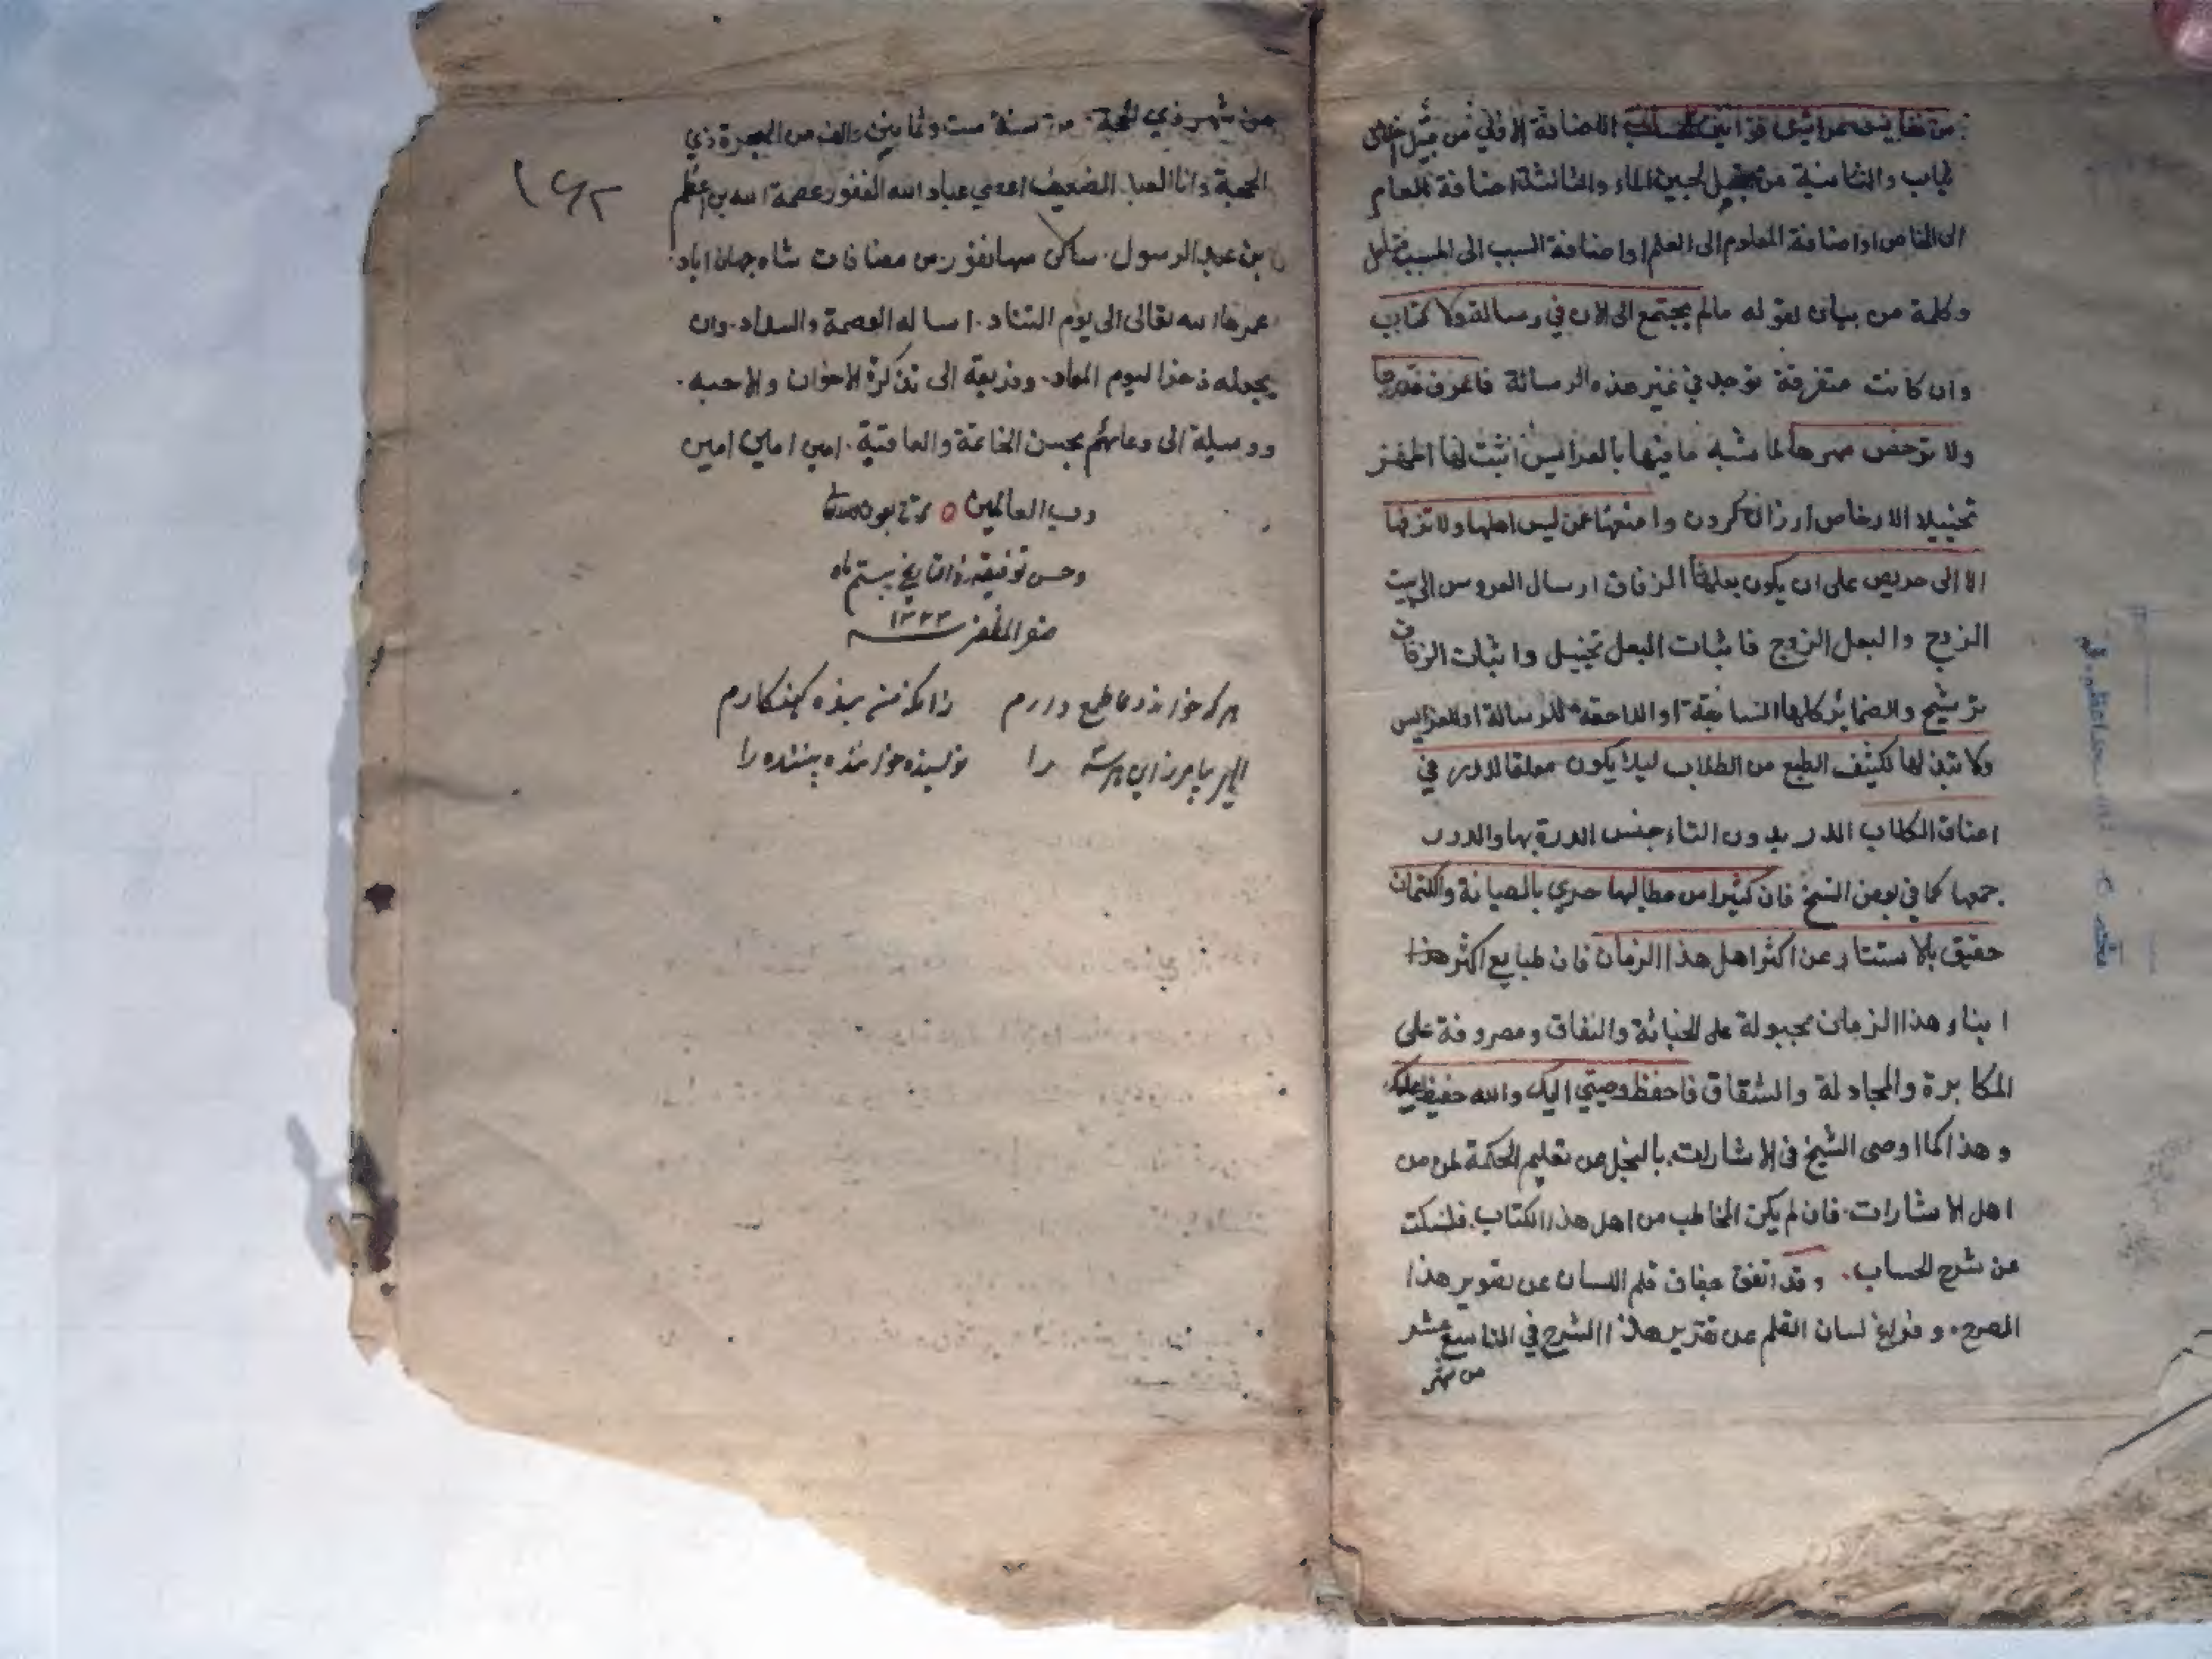 من نفايس عرايس قوانين الحساب الاضافة الاولى من قبيل اخلاق
ثياب والثانية من قبيل لجين الماء والثالثة اضافة العام
الى الخاص او اضافة المعلوم الى العلم او اضافة السبب الى المسبب
وكلمة من بيان لقوله مالم يجتمع الى الان في رسالة ولا كتاب
وان كانت متفرقة توجد في غير هذه الرسالة فاعرف قدرها
ولا ترخص مهرها لما شبه ما فيها بالعرايس اثبت لها المهر
تخييلا الارخاص ارزان كردن وامنعها عمن ليس اهلها ولا تزفها
الا الى حريص على ان يكون بعلها الزفاف ارسال العروس الى بيت
الزوج والبعل الزوج فاثبات البعل تخييل واثبات الزفاف
ترشيح والضمائر كلها السابقة او اللاحقة للرسالة او للعرايس
ولا تبذلها لكثيف الطبع من الطلاب ليلا يكون معلقا للدرر في
اعناق الكلاب الدر بدون التاء جنس الدرة بها والدرر
جمعها كما في بعض النسخ فان كثيرا من مطالبها حري بالصيانة والكتمان
حقيق بالاستتار عن اكثر اهل هذا الزمان فان طبايع اكثر هذا
ابناء هذا الزمان مجبولة على الخباثة والنفاق ومصروفة على
المكابرة والمجادلة والشقاق فاحفظ وصيتي اليك والله حفيظ عليك
وهذا كما اوصى الشيخ في الاشارات بالبخل عن تعليم الحكمة لمن من
اهل الاشارات فان لم يكن المخاطب من اهل هذا الكتاب فلسكت
عن شرح الحساب وقد اتفق جفاف قلم اللسان عن تصوير هذا
الصرح وفراغ لسان القلم عن تقرير هذا الشرح في التاسع عشر
من شهر
من شهر ذي الحجة سنة ست وثمانين والف من الهجرة ذي
الحجة وانا العبد الضعيف عباد الله الغفور عصمة الله بن اعظم
بن عبد الرسول ساكن سهارنفور من مضافات شاه جهان اباد
عمرها الله تعالى الى يوم التناد اساله العصمة والسداد وان
يجعله ذخرا ليوم المعاد وذريعة الى تذكرة الاخوان والاحبه
ووسيلة الى دعائهم بحسن الخاتمة والعافية امين امين امين
رب العالمين
وحسن توفيقه تاريخ بيستم ماه
صفر المظفر ١٢٣٣
هر که خواند دعا طمع دارم زانکه من بنده گنهکارم
الهی بیامرز این هر سه را نویسنده خواننده بیننده را